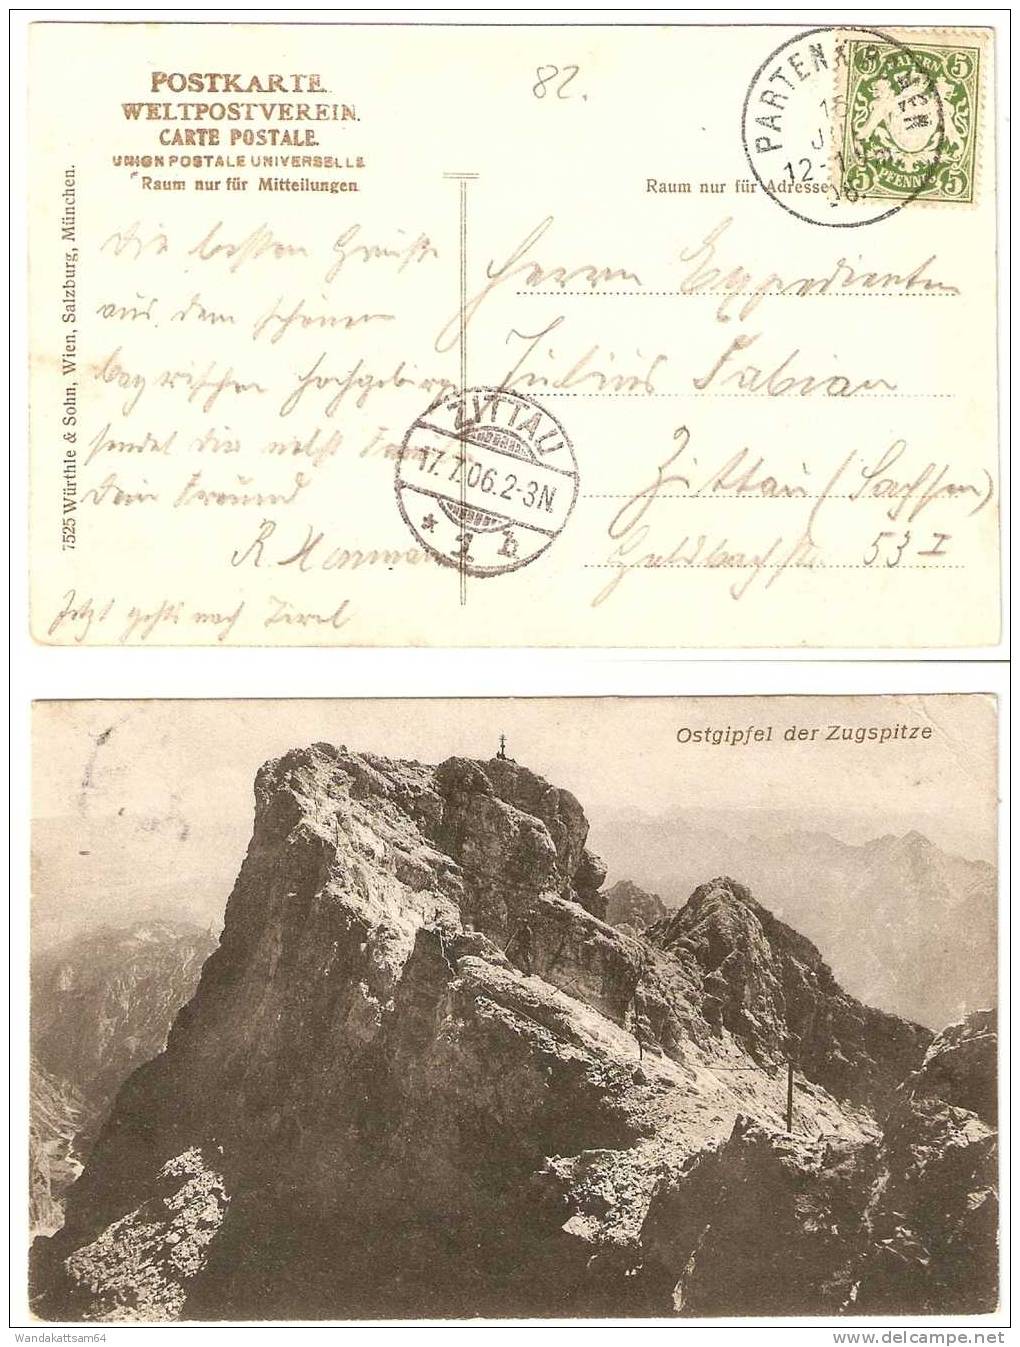 POSTKARTE.
WELTPOSTVEREIN.
CARTE POSTALE.
UNION POSTALE UNIVERSELLE
Raum nur für Mitteilungen
82.
PARTENKIRCHEN
16
JUL
12-1 N
06.
BAYERN
5 5
PFENNIG
5 5
Raum nur für Adresse
7525 Würthle & Sohn, Wien, Salzburg, München.
Die besten Grüße
aus dem schönen
bayrischen Hochgebirge
sendet dir nebst
Dein Freund
R
Jetzt gehts nach Tirol
Herrn Expedienten
Julius Fabian
Zittau (Sachsen)
Goldbachstr. 53 I
ZITTAU
17.7.06.2-3N.
* 1 b
Ostgipfel der Zugspitze
Wandakattsam64
delcampe.net